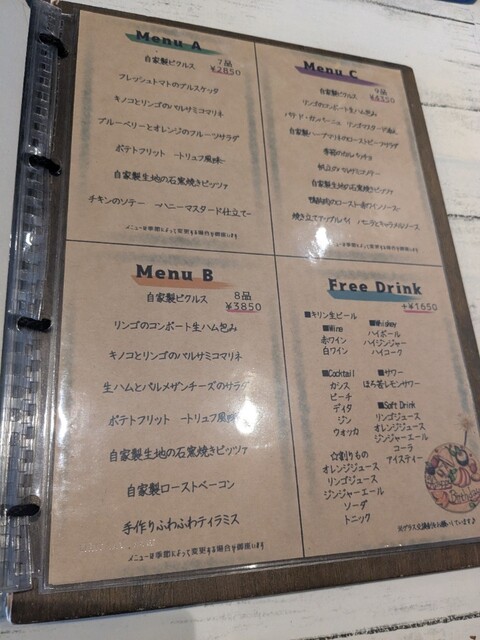 Menu A
7品
¥2850
自家製ピクルス
フレッシュトマトのブルスケッタ
キノコとリンゴのバルサミコマリネ
ブルーベリーとオレンジのフルーツサラダ
ポテトフリット ートリュフ風味ー
自家製生地の石窯焼きピッツァ
チキンのソテー ーハニーマスタード仕立てー
メニューは季節によって変更する場合が御座います
Menu B
8品
¥3850
自家製ピクルス
リンゴのコンポート生ハム包み
キノコとリンゴのバルサミコマリネ
生ハムとパルメザンチーズのサラダ
ポテトフリット ートリュフ風味ー
自家製生地の石窯焼きピッツァ
自家製ローストベーコン
手作りふわふわティラミス
メニューは季節によって変更する場合が御座います
Menu C
9品
¥4350
自家製ピクルス
リンゴのコンポート生ハム包み
パテ・ド・カンパーニュ リンゴマスタード添え
自家製ハーブマリネのローストビーフサラダ
季節のカルパッチョ
帆立のバルサミコソテー
自家製生地の石窯焼きピッツァ
鴨胸肉のローストー赤ワインソースー
焼き立てアップルパイ バニラとキャラメルソース
メニューは季節によって変更する場合が御座います
Free Drink
+¥1650
■キリン生ビール
■Wine
赤ワイン
白ワイン
■Whiskey
ハイボール
ハイジンジャー
ハイコーク
■Cocktail
カシス
ピーチ
ディタ
ジン
ウォッカ
☆割りもの
オレンジジュース
リンゴジュース
ジンジャーエール
ソーダ
トニック
■サワー
ほろ苦レモンサワー
■Soft Drink
リンゴジュース
オレンジジュース
ジンジャーエール
コーラ
アイスティー
※グラス交換制をお願いしています♪